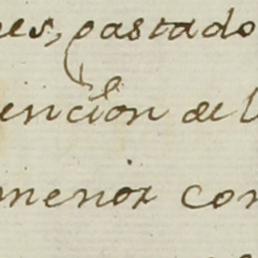 es, gastado
encion de l
menor con